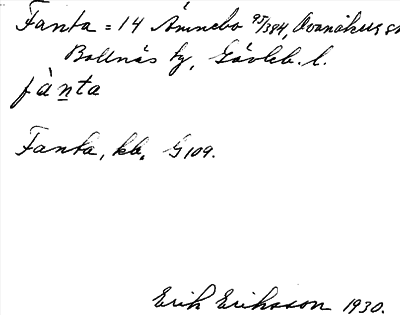 Fanta = 14 Ämnebo 95/384, Ovanåkers sn
Bollnäs tg, Gävleb. l.
fànta
Fanta, kb. G 109.
Erik Eriksson 1930.